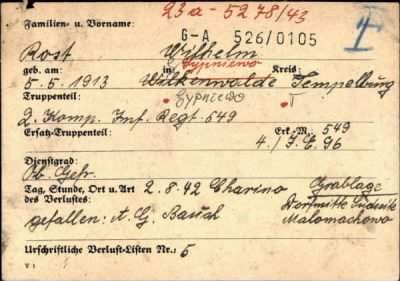 23a - 5278/43
Familien- u. Vorname: G-A 526/0105
Rost, Wilhelm
Gypniewo
geb. am: in: Kreis:
5.5.1913 Wilkenwalde Tempelburg
Truppenteil: Gypniewo T
2. Komp. Inf. Regt. 549
Ersatz-Truppenteil: Erk.-M.: 549
4./I.E. 96
Dienstgrad:
Ob. Gefr.
Tag, Stunde, Ort u. Art 2.8.42 Charino Grablage
des Verlustes: Dorfmitte Südseite
gefallen: A.G. Bauch Malomachowo
Urschriftliche Verlust-Listen Nr.: 5
V 1